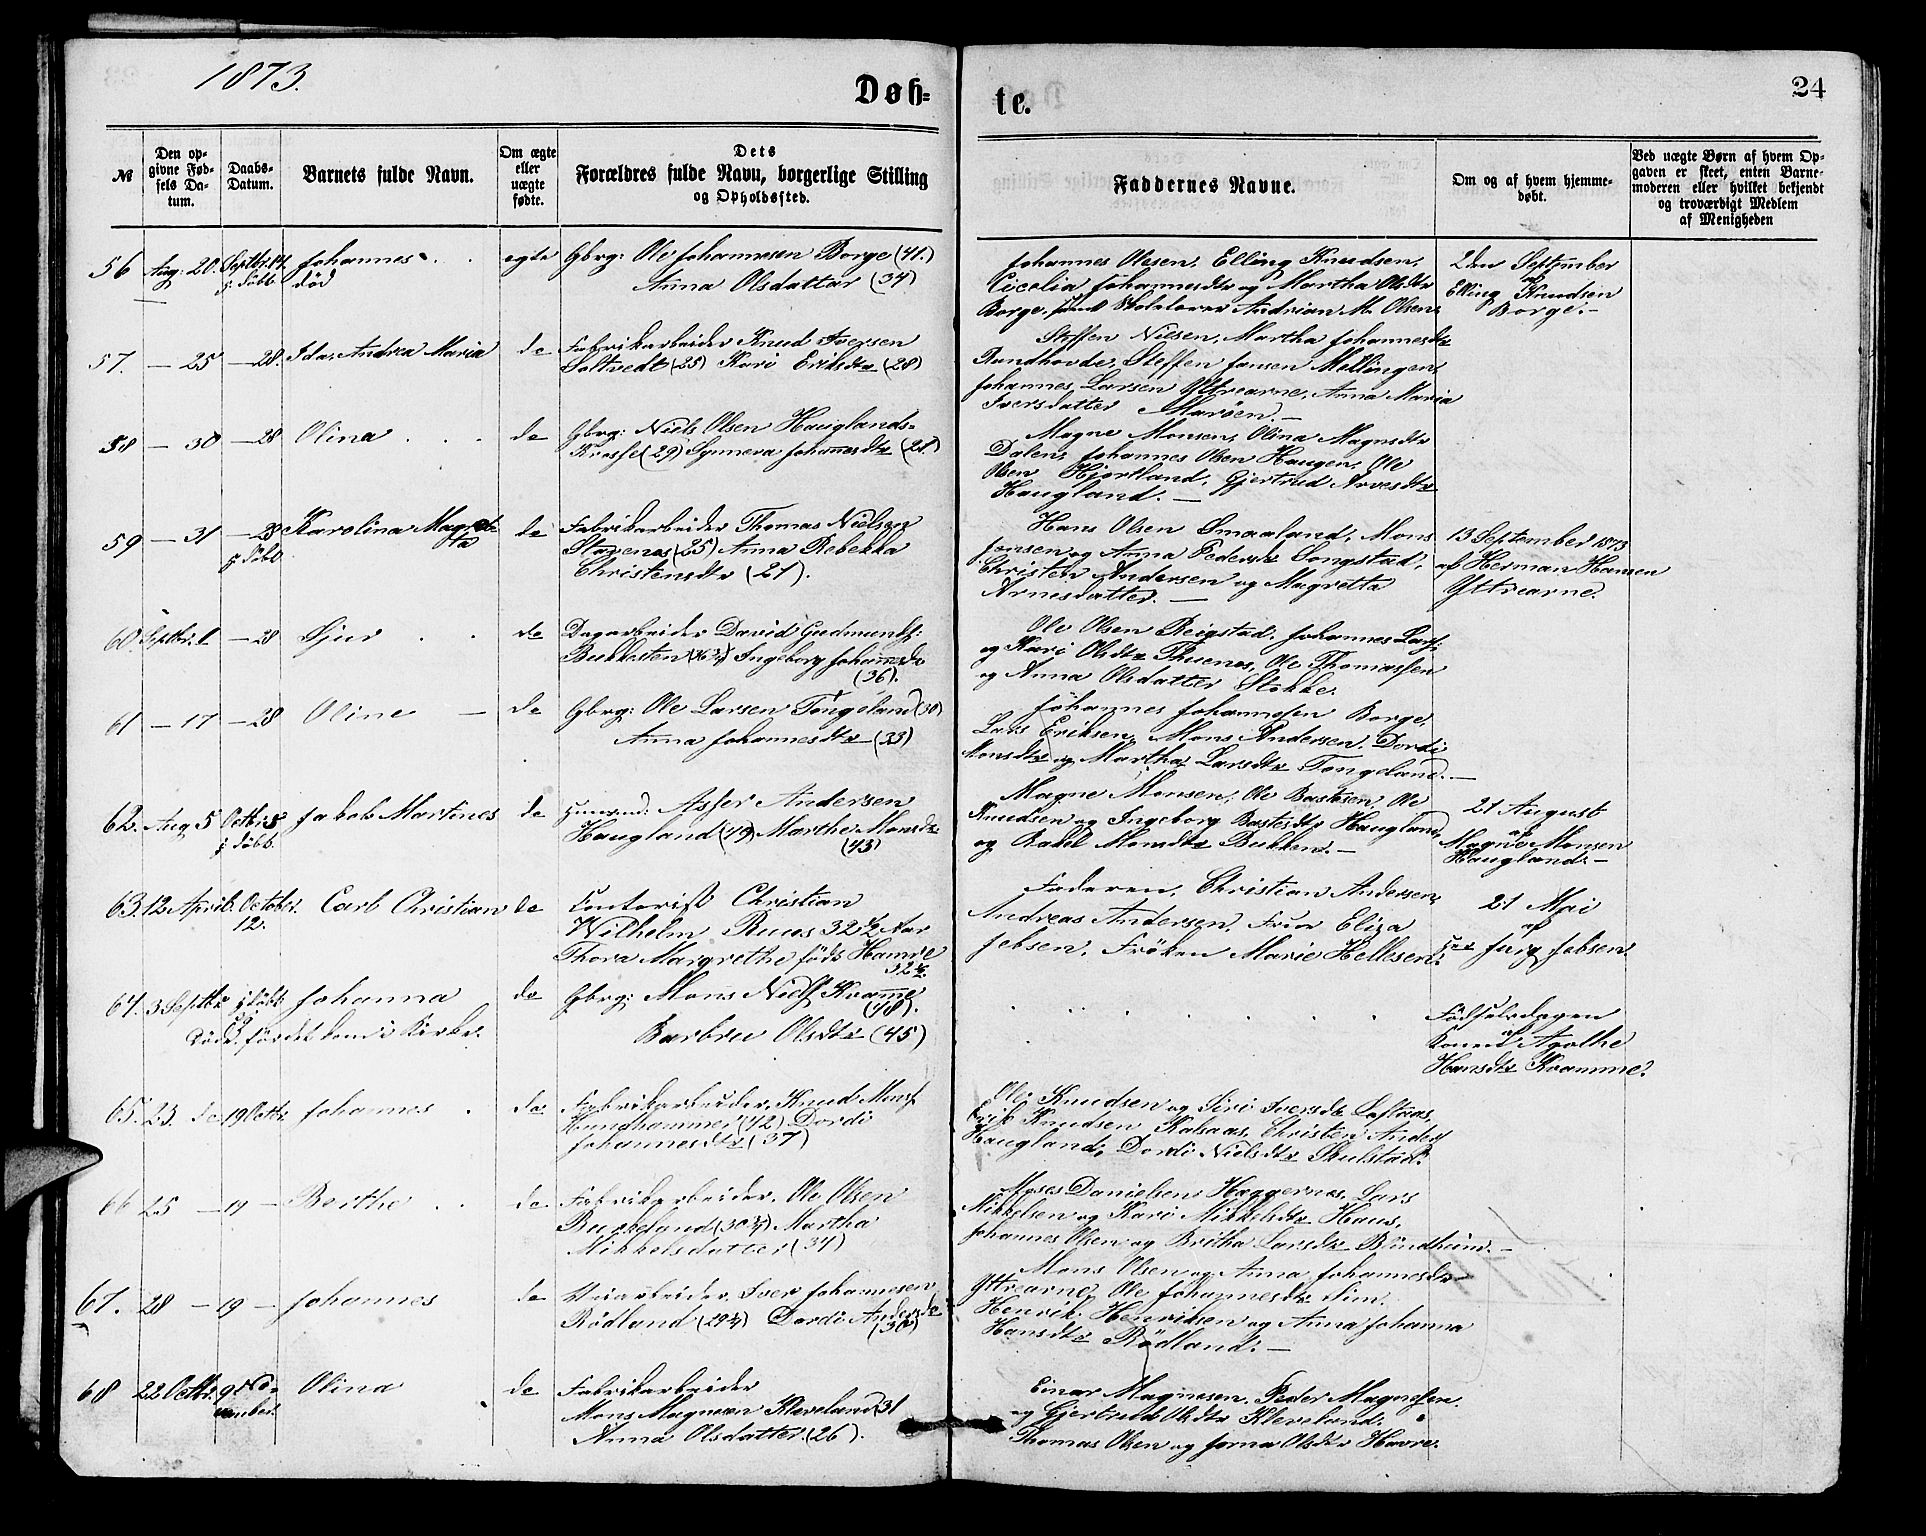 1873.
Døb=
te.
24
№
Den op-
givne Fød-
sels Da-
tum.
Daabs-
Datum.
Barnets fulde Navn.
Om ægte
eller
uægte
fødte.
Dets
Forældres fulde Navn, borgerlige Stilling
og Opholdssted.
Faddernes Navne.
Om og af hvem hjemme-
døbt.
Ved uægte Børn af hvem Op-
gaven er skeet, enten Barne-
moderen eller hvilket bekjendt
og troværdigt Medlem
af Menigheden
56 Aug: 20. Septbr. 14. Johannes egte Gbrg: Ole Johannesen Borge (41.)
hj. döbt. död Anna Olsdatter (34)
Johannes Olsen, Elling Knudsen,
Cicelia Johannesdtr og Martha Olsdtr
Borge, samt Skolelærer Andrian M. Olsen.
2den September
af
Elling Knudsen
Borge.-
57. - 25 - 28. Ida Andrea Maria de Fabrikarbeider Knud Iversen
Saltvedt (25) Kari Eriksdtr (28)
Steffen Nilsen, Martha Johannesdtr
Rundhovde, Steffen Jansen Mellingen,
Johannes Larsen Yttrearne, Anna Maria
Iversdatter Maröen.-
58 - 30 - 28 Olina de Gbrg: Niels Olsen Hauglands=
(29) Synneva Johannesdtr (28.)
Magne Monsen, Olina Magnedtr
Dalen, Johannes Olsen Haugen, Ole
Olsen Hjortland, Gjertrud Arvesdtr
Haugland.-
59 - 31 - 28 Karolina Magret- de Fabrikarbeider Thomas Nielsen
hj. döbt ta Stavenes (25) Anna Rebekka
Christensdtr (21).
Hans Olsen Smaaland, Mons
Jonsen og Anna Pedersdtr Songstad,
Christen Andersen og Magretta
Arnesdatter.-
13 September 1873
af Herman Hansen
Yttrearne.
60. Septbr. 1 - 28 Sjur de Dagarbeider David Gudmunds:
Bukkesten Ingeborg Johannesdtr
(36).
Ole Olsen Reigstad, Johannes Lars:
og Kari Olsdtr Thunes, Ole Thomassen
og Anna Olsdatter Stokke.
61 - 17 - 28 Oline - de Gbrg: Ole Larsen Tongeland (30)
Anna Johannesdtr (33)
Johannes Johannesen Borge,
Lars Eriksen, Mons Andersen, Dordi
Monsdtr og Martha Larsdtr Tongeland.-
62. Aug 5 Octbr. 5 Jakob Martines de Huusmd: Asser Andersen
hj. döbt. Haugland (49) Marthe Monsdtr
(43)
Magne Monsen, Ole Bastesen, Ole
Knudsen og Ingeborg Bastesdtr Haugland,
og Rakel Monsdtr Bukken.-
21 August
af
Magne Monsen
Haugland.-
63. 12 April. October. Carl Christian de Contorist Christian
12. Wilhelm 32½ Aar
Thora Margrethe födt Hamre
32½.
Faderen, Christian Andersen,
Andreas Andersen, Frue Eliza
Jebsen, Fröken Marie Hellesen.
21 Mai
af
Jürg Jebsen.
64. 3 Septbr hj. döbt Johanna de Gbrg: Mons Niels: Kramme
(48).
Döde för det kom i Kirke. Barbru Olsdtr (45)
Födselsdagen
af
Konen Agathe
Hansdtr Kramme.
65. 23. de 19 Octbr Johannes de Fabrikarbeider Knud Mons:
Hundhammer (42) Dordi
Johannesdtr (37)
Ole Knudsen og Siri Iversdtr Loftaas,
Erik Knudsen Kalsaas, Christen Anders:
Haugland, Dordi Nielsdtr Skulstad.
66 25 - 19 - Berthe de Fabrikarbeider, Ole Olsen
Martha
Mikkelsdatter (34)
Moses Danielsen Haggernes, Lars
Mikkelsen og Kari Mikkelsdtr Haus,
Johannes Olsen og Britha Larsdtr -
67. 28 - 19 - Johannes de Veiarbeider Iver Johannesen
Rödland Dordi Andersdtr
(30)
Mons Olsen og Anna Johannesdtr
Yttrearne, Ole Johannesdtr Sim.
Henrik Henriksen og Anna Johanna
Hansdtr Rödland.-
68 22 Octbr. 9 No- Olina de Fabrikarbeider
vember. Mons Magnesen Kleveland 31
Anna Olsdatter (26).
Einar Magnesen, Peder Magnesen
og Gjertrud Olsdtr Kleveland.
Thomas Olsen og Olsdtr Havre.